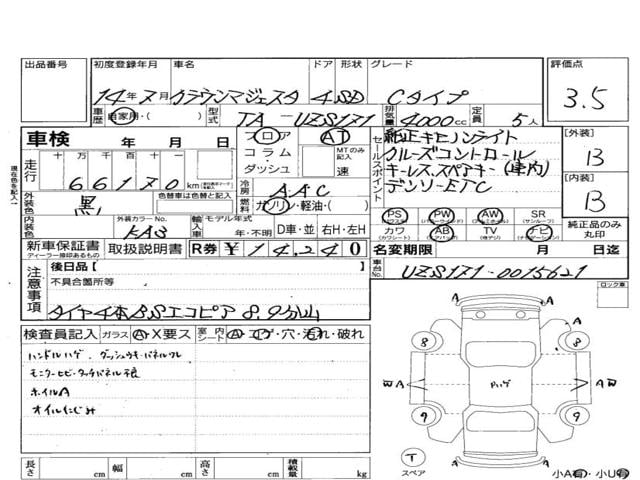 出品番号 初度登録年月 車名 ドア 形状 グレード 評価点
14年7月 クラウンマジェスタ 4 SD Cタイプ 3.5
車歴 自家用・( ) 型式 TA-UZS171 排気量 4000cc 定員 5人
車検 年 月 日 フロア AT 純正キセノンライト 【外装】
走行 十 万 千 百 十 コラム・ MTのみ記入 セールスポイント クルーズコントロール B
66170km ダッシュ 速 キーレス、スペアキー(車内) 【内装】
外装色 黒 色替車は色替と記入 冷房 AAC デンソーETC B
現在色を記入
燃料 ガソリン・軽油・( ) PS PW AW SR
内装色 外装カラーNo. KAS 輸入車 モデル年式 年・不明 D車・並 右H・左H カワ AB TV ナビ 純正品のみ丸印
新車保証書 取扱説明書 R券 ¥14,240 名変期限 月 日迄
ディーラー捺印あるもの
注意事項 後日品【 】 車台No. UZS171-0015621
不具合箇所等 ロック車
タイヤ4本B,Sエコピア8,9分山
検査員記入 ガラス A・X要ス 室内シート A・エゲ・穴・汚れ・破れ
ハンドルハゲ、ダッシュウキ・パネルワレ
モニターヒビ・タッチパネル不良
ホイルA
オイルにじみ
A A
A
8 8
W A Pハゲ A W
9 9
A A
T
スペア 小A有・小U有
長さ cm 幅 cm 高さ cm 積載量 kg